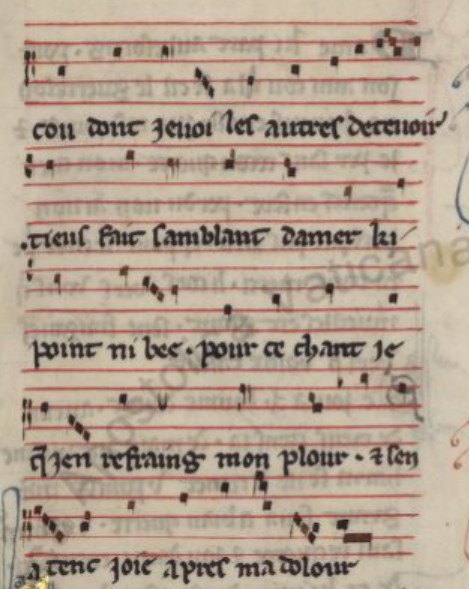 cou dont jenoi les autres decevoir
tieus fait samblant damer ki
point ni bee · pour ce chant je
q̃ jen refraing mon plour · ⁊ sen
atenc joie apres ma dolour